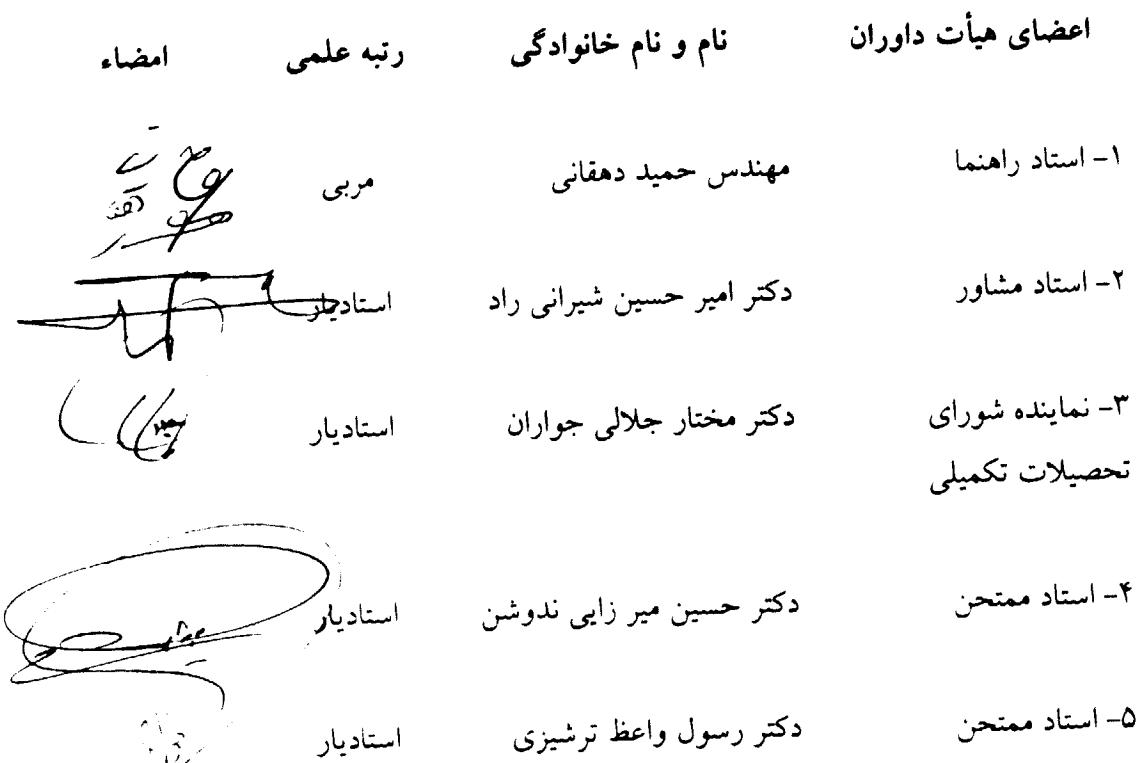 اعضای هیأت داوران نام و نام خانوادگی رتبه علمی امضاء
۱- استاد راهنما مهندس حمید دهقانی مربی
۲- استاد مشاور دکتر امیر حسین شیرانی راد استادیار
۳- نماینده شورای دکتر مختار جلالی جواران استادیار
تحصیلات تکمیلی
۴- استاد ممتحن دکتر حسین میر زایی ندوشن استادیار
۵- استاد ممتحن دکتر رسول واعظ ترشیزی استادیار